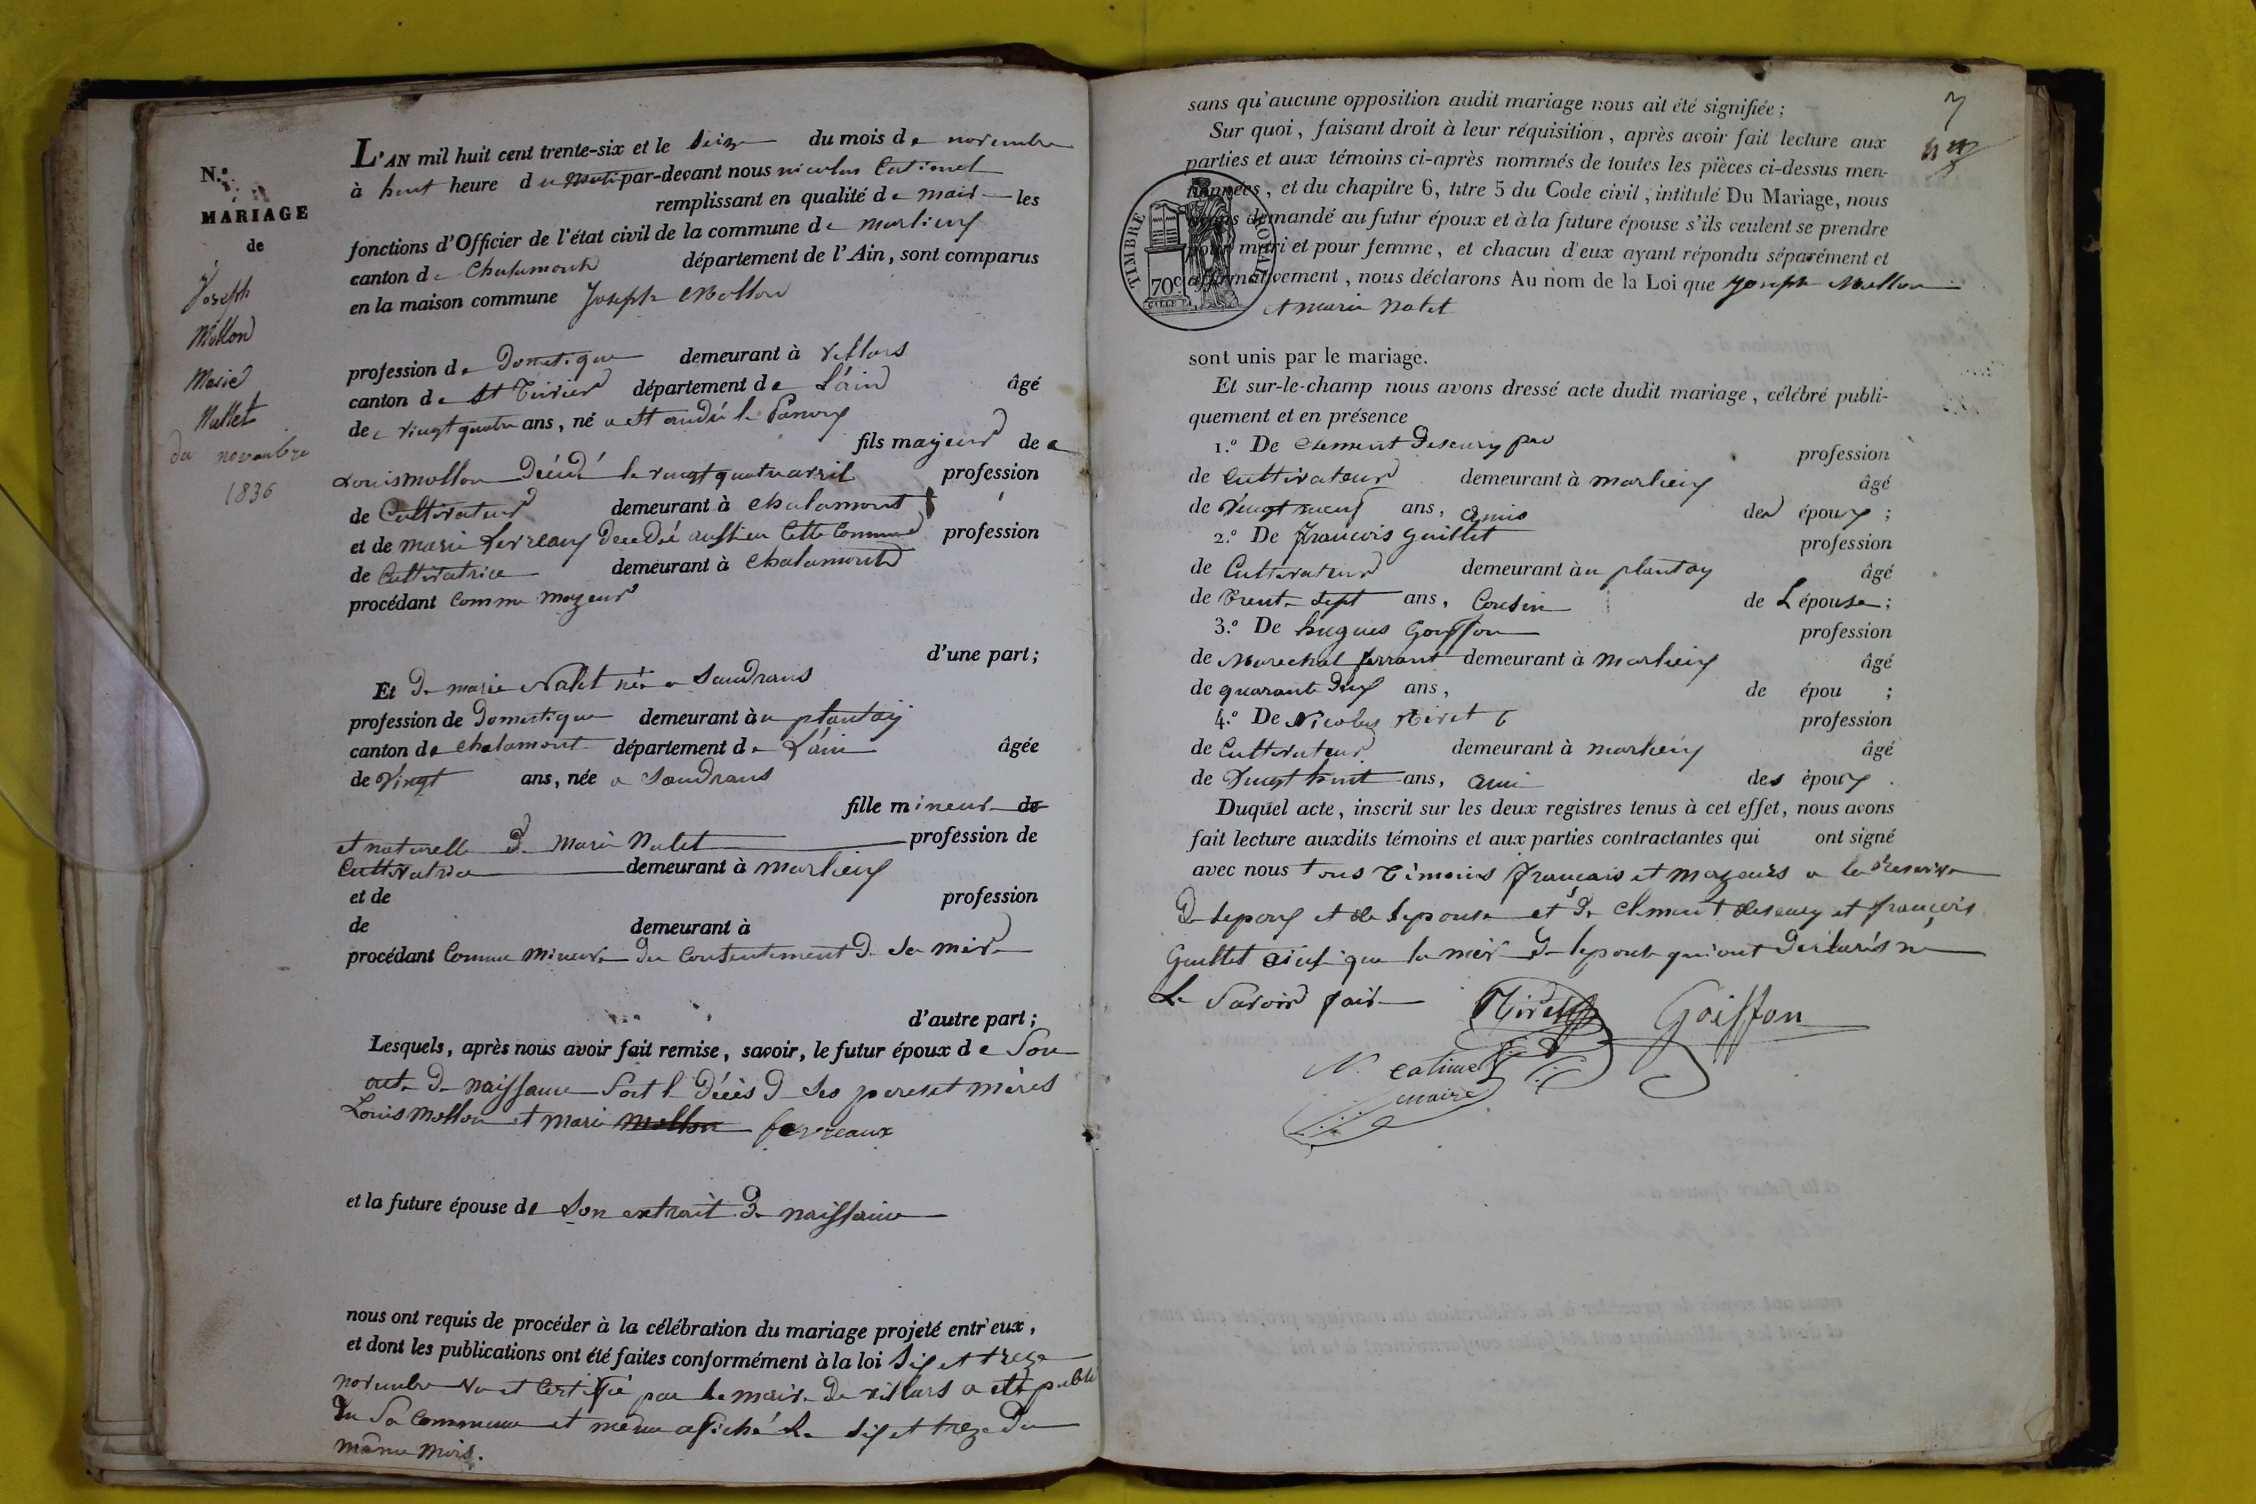 N.º
MARIAGE
de
Joseph
Mollon
Marie
Nallet
du novembre
1836
L'AN mil huit cent trente-six et le seize du mois de novembre
à huit heure du matin par-devant nous nicolas Catimel
remplissant en qualité de maire les
fonctions d'Officier de l'état civil de la commune de marlieux
canton de Chalamont département de l'Ain, sont comparus
en la maison commune Joseph Mollon
profession de Domestique demeurant à villars
canton de St Trivier département de L'ain âgé
de vingt quatre ans, né a st andré le Panoux
fils majeur de
Louis mollon Décédé le vingt quatre avril profession
de Cultivateur demeurant à chalamont
et de marie fevreaux decedée aussi en Cette Commune profession
de Cultivatrice demeurant à chalamont
procédant comme mageur
d'une part;
Et de marie Nalet née a Sandrans
profession de Domestique demeurant à u plantay
canton de chalamont département de L'ain âgée
de Vingt ans, née a Sandrans
fille mineur de
et naturelle de Marie Nalet profession de
Cultivatrice demeurant à marlieux
et de profession
de demeurant à
procédant Comme mineure du Consentement de sa mère
d'autre part;
Lesquels, après nous avoir fait remise, savoir, le futur époux de son
acte de naissance soit l décès de ses peres et mères
Louis mollon et marie mollon fevreaux
et la future épouse de son extrait de naissance
nous ont requis de procéder à la célébration du mariage projeté entr'eux,
et dont les publications ont été faites conformément à la loi six et treze
novembre vu et Certifié par le maire de villars a été publié
du sa commune et même afiché le six et treze du
même mois.
7
sans qu'aucune opposition audit mariage nous ait été signifiée;
Sur quoi, faisant droit à leur réquisition, après avoir fait lecture aux
parties et aux témoins ci-après nommés de toutes les pièces ci-dessus men-
tionnées, et du chapitre 6, titre 5 du Code civil, intitulé Du Mariage, nous
avons demandé au futur époux et à la future épouse s'ils veulent se prendre
pour mari et pour femme, et chacun d'eux ayant répondu séparément et
affirmativement, nous déclarons Au nom de la Loi que Joseph Mollon
et marie Nalet
TIMBRE ROYAL
70c
sont unis par le mariage.
Et sur-le-champ nous avons dressé acte dudit mariage, célébré publi-
quement et en présence
1.º De Clement profession
de Cultivateur demeurant à marlieux âgé
de Vingt neuf ans, amis des époux;
2.º De françois Guillet profession
de Cultivateur demeurant à u plantay âgé
de trente sept ans, Cousin de L épouse;
3.º De hugues Goiffon profession
de Marechal ferrant demeurant à Marlieux âgé
de quarante deux ans, de épou ;
4.º De Nicolas profession
de Cultivateur demeurant à marlieux âgé
de Vingt huit ans, ami des époux.
Duquel acte, inscrit sur les deux registres tenus à cet effet, nous avons
fait lecture auxdits témoins et aux parties contractantes qui ont signé
avec nous tous témoins français et mageurs a la reserve
de lepoux et de lepouse et de clement et françois
Guillet ainsi que la mère de lepouse qui ont declarés ne
Le savoir faire
Goiffon
N. catimel
maire